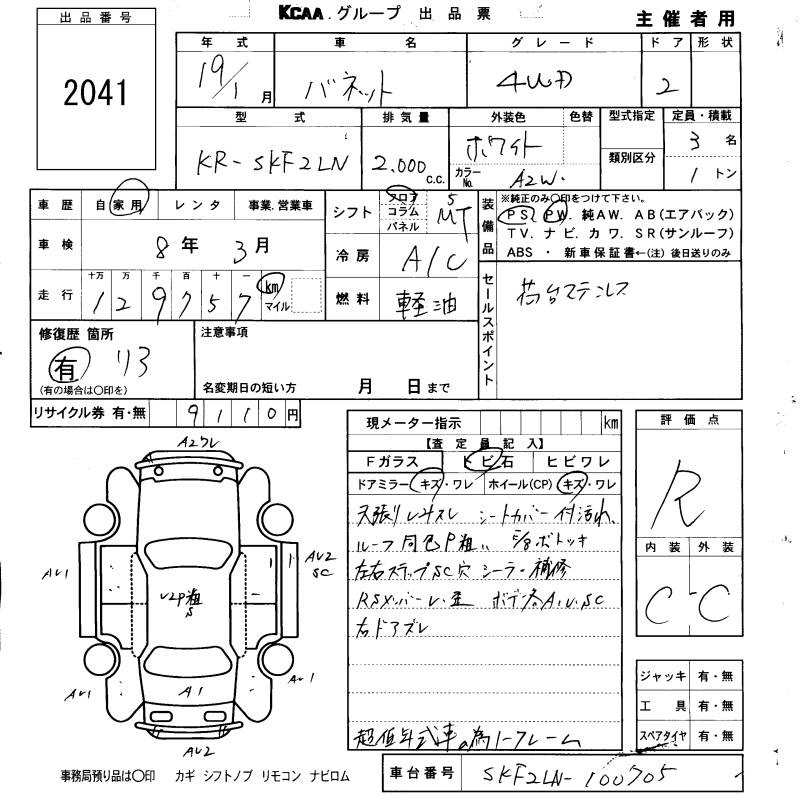 出品番号
2041
KCAA.グループ 出品票
主催者用
年式 車名 グレード ドア 形状
19/1月 バネット 4WD 2
型式 排気量 外装色 色替 型式指定 定員・積載
KR-SKF2LN 2.000c.c. ホワイト カラーNo. A2W. 類別区分 3名 1トン
車歴 自家用 レンタ 事業.営業車
車検 8年 3月
走行 十万 万 千 百 十 一
129757 km マイル
シフト フロア コラム パネル 5 MT
冷房 A/C
燃料 軽油
装備品 ※純正のみ〇印をつけて下さい。
PS. PW. 純AW. AB(エアバック)
TV. ナビ. カワ. SR(サンルーフ)
ABS ・ 新車保証書←(注) 後日送りのみ
セールスポイント
荷台ステンレス
修復歴 箇所
有 リ3
(有の場合は〇印を)
注意事項
名変期日の短い方 月 日まで
リサイクル券 有・無 9110円
現メーター指示 km
【査定員記入】
Fガラス トビ石 ヒビワレ
ドアミラー キズ・ワレ ホイール(CP) キズ・ワレ
天張りしみスレ シートカバー付汚れ、
ルーフ同色P粗、
左右ステップSC穴 シーラー補修
右ドアズレ
超低年式車の為ノークレーム
評価点
R
内装 外装
C-C
ジャッキ 有・無
工具 有・無
スペアタイヤ 有・無
A2ワレ
AU1
AU2
SC
S
AU1
A1
AU1
AU2
事務局預り品は〇印 カギ シフトノブ リモコン ナビロム
車台番号 SKF2LN-100705